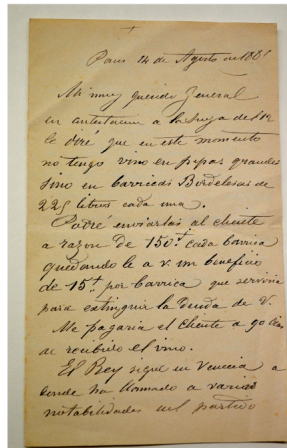 Paris 14 de Agosto de 188
Mi muy querido General
en contestacion a la suya del 12
le diré que en este momento
no tengo vino en pipas grandes
sino en barricas Bordelesas de
225 litros cada una.
Podré enviarlas al cliente
a razon de 150 cada barrica
quedandole a V. un beneficio
de 15 por barrica que serviria
para extinguir la deuda de V.
Me pagaria el cliente a 90 dias
de recibido el vino.
El Rey sigue en Venecia a
donde ha llamado a varias
notabilidades del partido